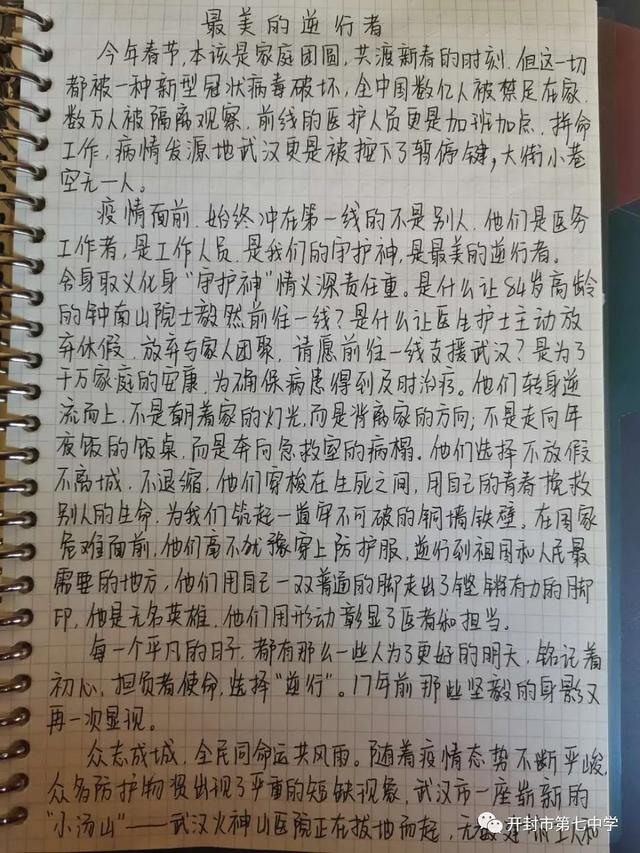 最美的逆行者
今年春节,本该是家庭团圆,共渡新春的时刻.但这一切
都被一种新型冠状病毒破坏,全中国数亿人被禁足在家.
数万人被隔离观察.前线的医护人员更是加班加点.拼命
工作,病情发源地武汉更是被按下了暂停键,大街小巷
空无一人。
疫情面前.始终冲在第一线的不是别人.他们是医务
工作者,是工作人员.是我们的守护神,是最美的逆行者。
令身取义化身“守护神”情义深责任重。是什么让84岁高龄
的钟南山院士毅然前往一线?是什么让医生护士主动放
弃休假.放弃与家人团聚.请愿前往一线支援武汉?是为了
千万家庭的安康.为确保病患得到及时治疗。他们转身逆
流而上.不是朝着家的灯光,而是背离家的方向;不是走向年
夜饭的饭桌.而是奔向急救室的病榻.他们选择不放假
不离城.不退缩.他们穿梭在生死之间,用自己的青春挽救
别人的生命.为我们筑起一道牢不可破的铜墙铁壁。在国家
危难面前,他们毫不犹豫穿上防护服,逆行到祖国和人民最
需要的地方,他们用自己一双普通的脚走出了铿锵有力的脚
印,他是无名英雄.他们用形动彰显了医者和担当。
每一个平凡的日子.都有那么一些人为了更好的明天,铭记着
初心,担负者使命,选择“逆行”。17年前那些坚毅的身影又
再一次显现。
众志成城,全民同命运共风雨。随着疫情态势不断严峻,
众多防护物资出现了严重的短缺现象,武汉市一座崭新的
“小汤山”——武汉火神山医院正在拔地而起,无数建
开封市第七中学